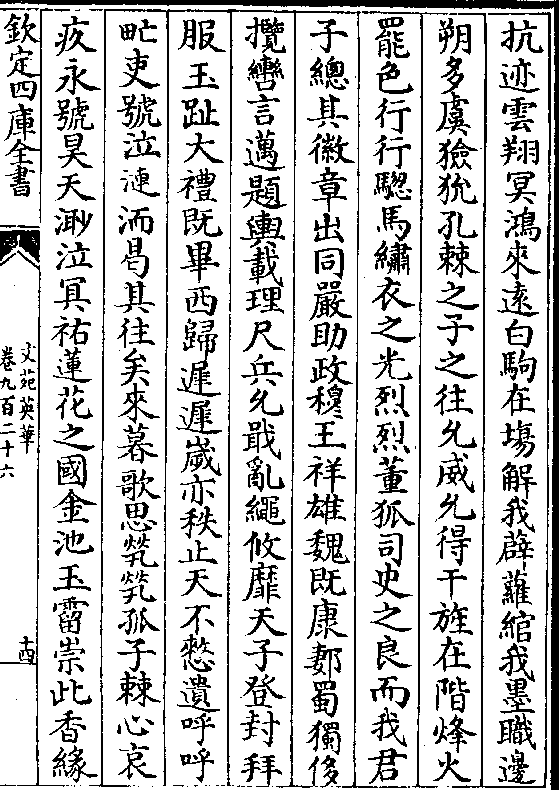 抗迹雲翔冥鴻來遠白駒在塲解我薜蘿綰我墨職邊
朔多虞獫狁孔棘之子之往允威允得干旌在階烽火
罷色行行驄馬繡衣之光烈烈董狐司史之良而我君
子總其徽章出同嚴助政穆王祥雄魏既康鄴蜀獨侈
攬轡言邁題輿載理尺兵允戢亂繩攸靡天子登封拜
服玉趾大禮既畢西歸遲遲嵗亦秩止天不憗遺呼呼
甿吏號泣漣洏曷其往矣來暮歌思煢煢孤子棘心哀
疚永號昊天泖泣冥祐蓮花之國金池玉霤崇此香緣
欽定四庫全書
文苑英華
卷九百二十六
十四